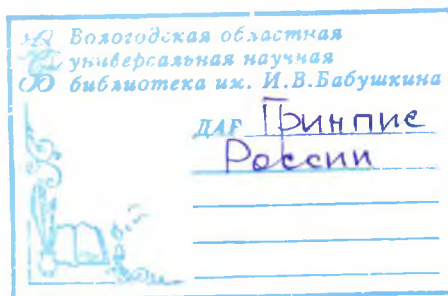 Вологодская областная
универсальная научная
библиотека им. И.В.Бабушкина
ДАР Гринпис
России